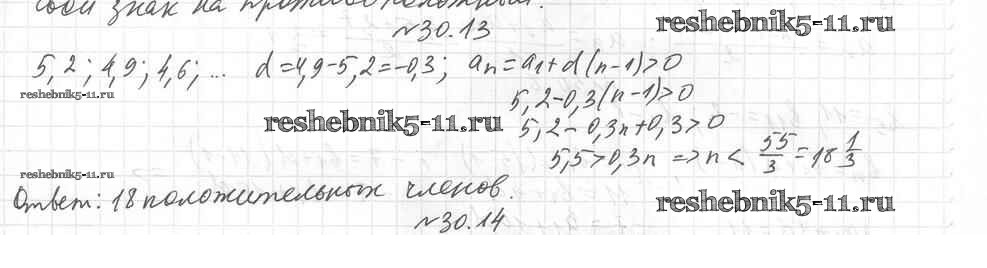 свой знак на противоположный.
№30.13
reshebnik5-11.ru
5,2; 4,9; 4,6; ... d=4,9-5,2=-0,3; aₙ=a₁+d(n-1)>0
reshebnik5-11.ru
5,2-0,3(n-1)>0
reshebnik5-11.ru
5,2-0,3n+0,3>0
5,5>0,3n => n< 55/3 = 18 1/3
reshebnik5-11.ru
Ответ: 18 положительных членов.
reshebnik5-11.ru
№30.14